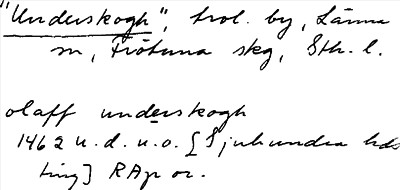 "Underskogh", trol. by, Länna
sn, Frötuna skg, Sth. l.
olaff underskogh
1462 u. d. u. o. [Sjuhundra hds
ting] RAp or.